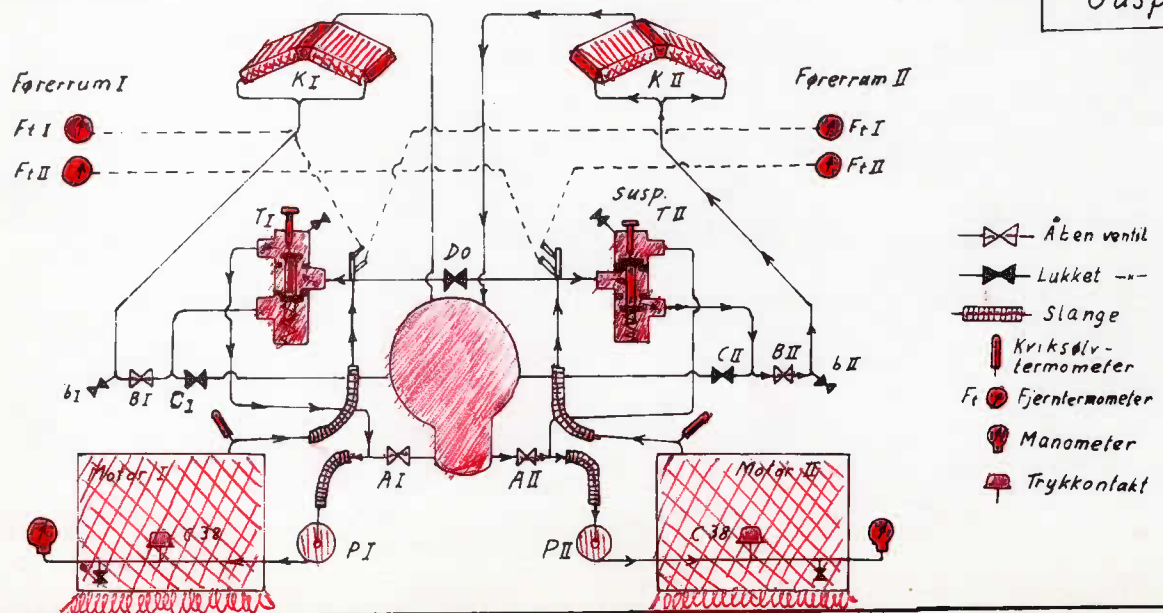 Førerrum I
Ft I
Ft II
K I
K II
Førerrum II
Ft I
Ft II
T I
Susp.
T II
D0
b I
B I
C I
C II
B II
b II
A I
A II
Motor I
C 38
P I
P II
Motor II
C 38
Åben ventil
Lukket -"-
Slange
Kviksølv-
termometer
Ft Fjerntermometer
Manometer
Trykkontakt